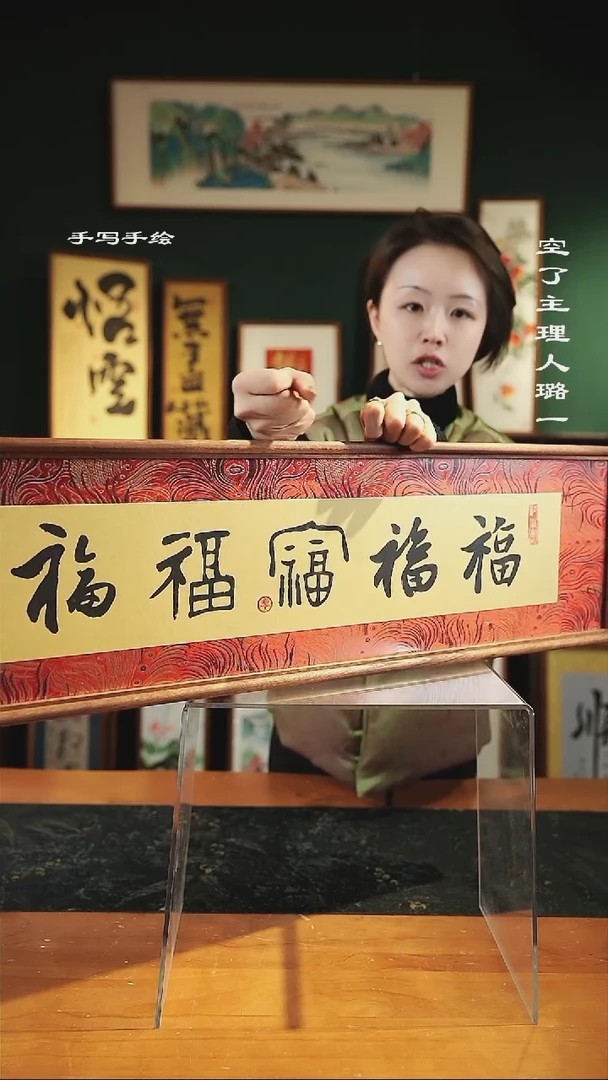 手写手绘
空了主理人璐一
悟空
福福福福福